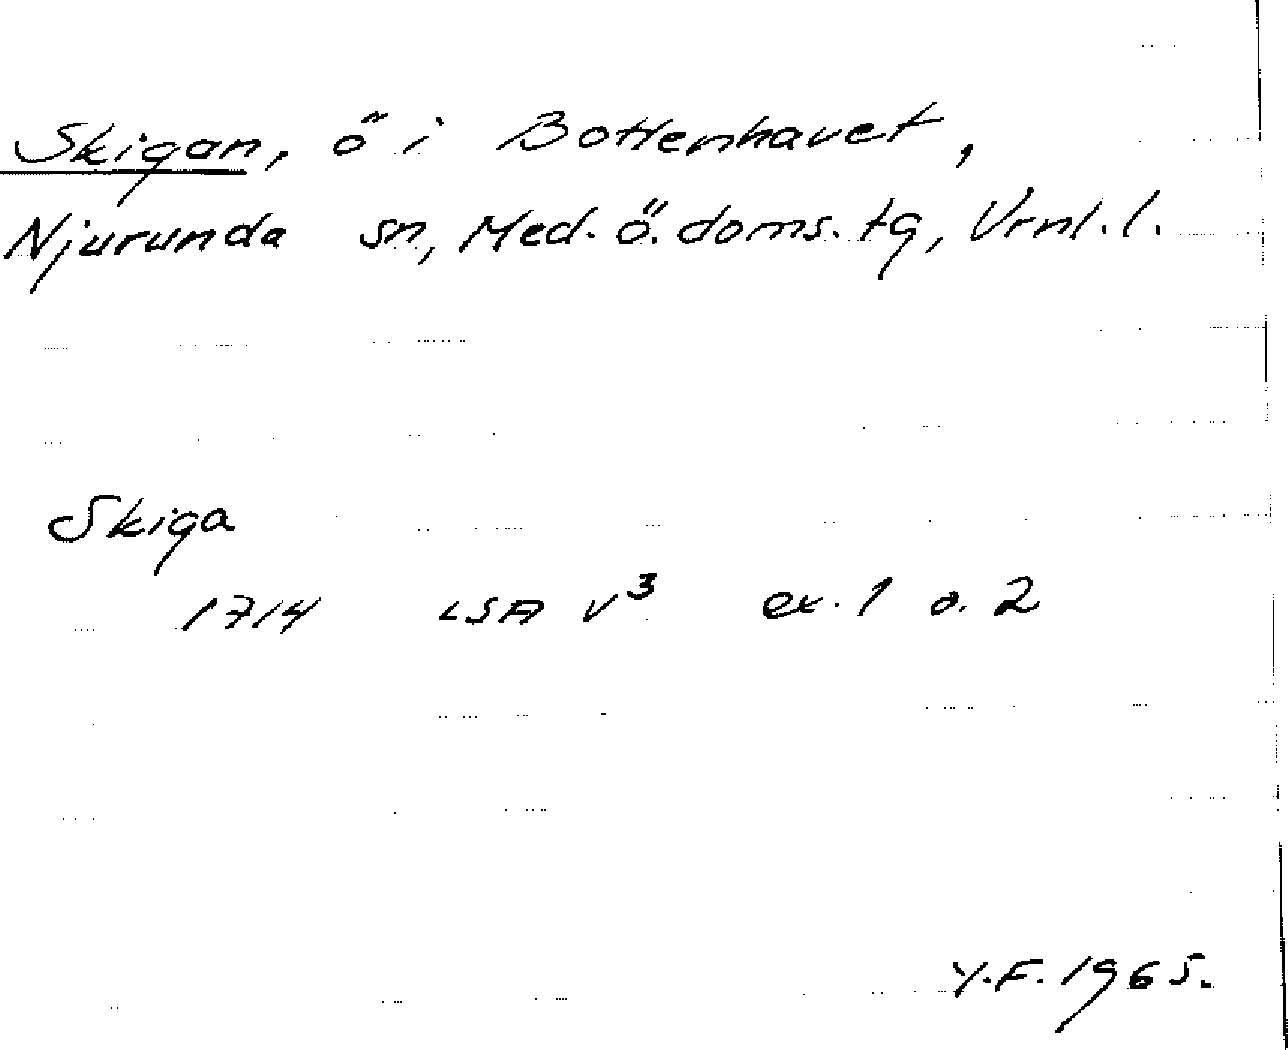 Skigan, ö i Bottenhavet,
Njurunda sn, Med. ö. doms. tg, Vrnl. l.
Skiga
1714 LSA V³ ex. 1 o. 2
Y.F. 1965.